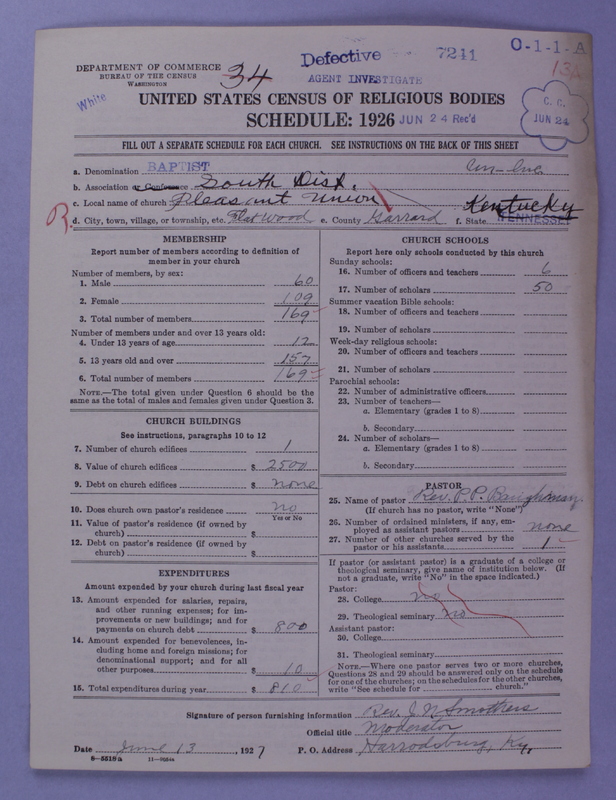 DEPARTMENT OF COMMERCE
BUREAU OF THE CENSUS
WASHINGTON
34
Defective 7241
AGENT INVESTIGATE
O-1-1-A
13A
White
UNITED STATES CENSUS OF RELIGIOUS BODIES
SCHEDULE: 1926
JUN 24 Rec'd
C. C.
JUN 24
FILL OUT A SEPARATE SCHEDULE FOR EACH CHURCH. SEE INSTRUCTIONS ON THE BACK OF THIS SHEET
a. Denomination BAPTIST
b. Association or Conference South Dist.
c. Local name of church Pleasant Union
Kentucky
R
d. City, town, village, or township, etc. Flat Wood e. County Garrard f. State TENNESSEE
MEMBERSHIP
Report number of members according to definition of
member in your church
Number of members, by sex:
1. Male 60
2. Female 109
3. Total number of members 169
Number of members under and over 13 years old:
4. Under 13 years of age 12
5. 13 years old and over 157
6. Total number of members 169
NOTE.—The total given under Question 6 should be the
same as the total of males and females given under Question 3.
CHURCH BUILDINGS
See instructions, paragraphs 10 to 12
7. Number of church edifices 1
8. Value of church edifices $ 2500
9. Debt on church edifices $ none
10. Does church own pastor's residence no
Yes or No
11. Value of pastor's residence (if owned by
church) $
12. Debt on pastor's residence (if owned by
church) $
EXPENDITURES
Amount expended by your church during last fiscal year
13. Amount expended for salaries, repairs,
and other running expenses; for im-
provements or new buildings; and for
payments on church debt $ 800
14. Amount expended for benevolences, in-
cluding home and foreign missions; for
denominational support; and for all
other purposes $ 10
15. Total expenditures during year $ 810
CHURCH SCHOOLS
Report here only schools conducted by this church
Sunday schools:
16. Number of officers and teachers 6
17. Number of scholars 50
Summer vacation Bible schools:
18. Number of officers and teachers
19. Number of scholars
Week-day religious schools:
20. Number of officers and teachers
21. Number of scholars
Parochial schools:
22. Number of administrative officers
23. Number of teachers—
a. Elementary (grades 1 to 8)
b. Secondary
24. Number of scholars—
a. Elementary (grades 1 to 8)
b. Secondary
PASTOR
25. Name of pastor Rev. P. P. Baughman
(If church has no pastor, write "None")
26. Number of ordained ministers, if any, em-
ployed as assistant pastors none
27. Number of other churches served by the
pastor or his assistants 1
If pastor (or assistant pastor) is a graduate of a college or
theological seminary, give name of institution below. (If
not a graduate, write "No" in the space indicated.)
Pastor:
28. College no
29. Theological seminary no
Assistant pastor:
30. College
31. Theological seminary
NOTE.—Where one pastor serves two or more churches,
Questions 28 and 29 should be answered only on the schedule
for one of the churches; on the schedules for the other churches,
write "See schedule for church."
Signature of person furnishing information Rev. J. N. Smothers
Official title Moderator
Date June 13, 1927 P. O. Address Harrodsburg, Ky,